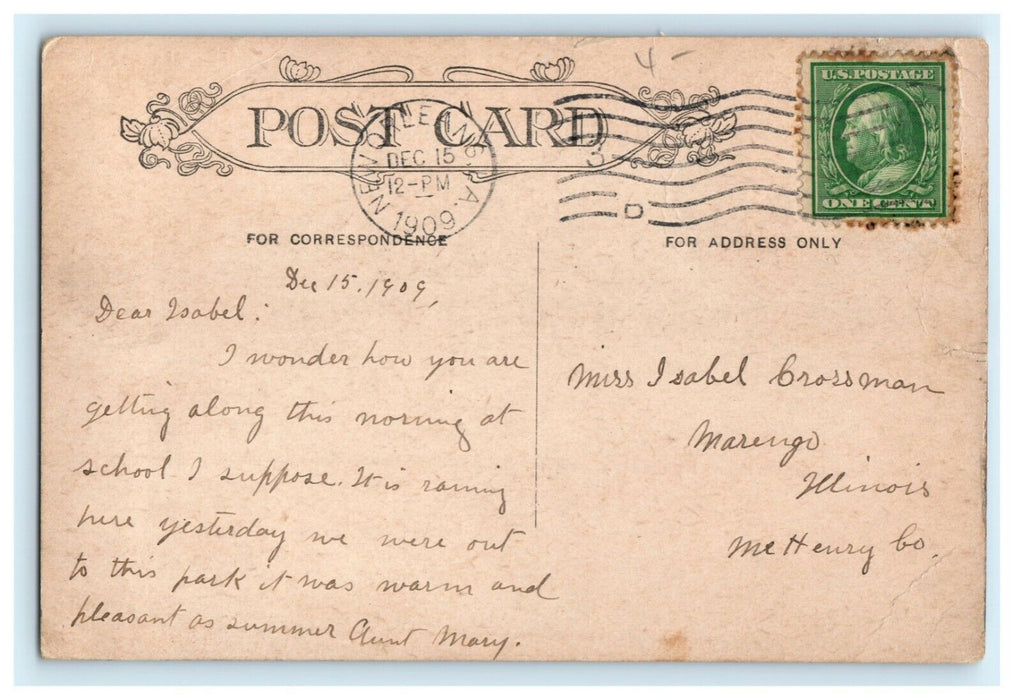 4-
U.S. POSTAGE
POST CARD
NEW ORLEANS, LA.
DEC 15
12-PM
1909
3
D
ONE CENT
FOR CORRESPONDENCE
FOR ADDRESS ONLY
Dec 15, 1909,
Dear Isabel:
I wonder how you are
getting along this morning at
school I suppose. It is raining
here yesterday we were out
to this park it was warm and
pleasant as summer Aunt Mary.
Miss Isabel Crossman
Marengo
Illinois
McHenry Co.